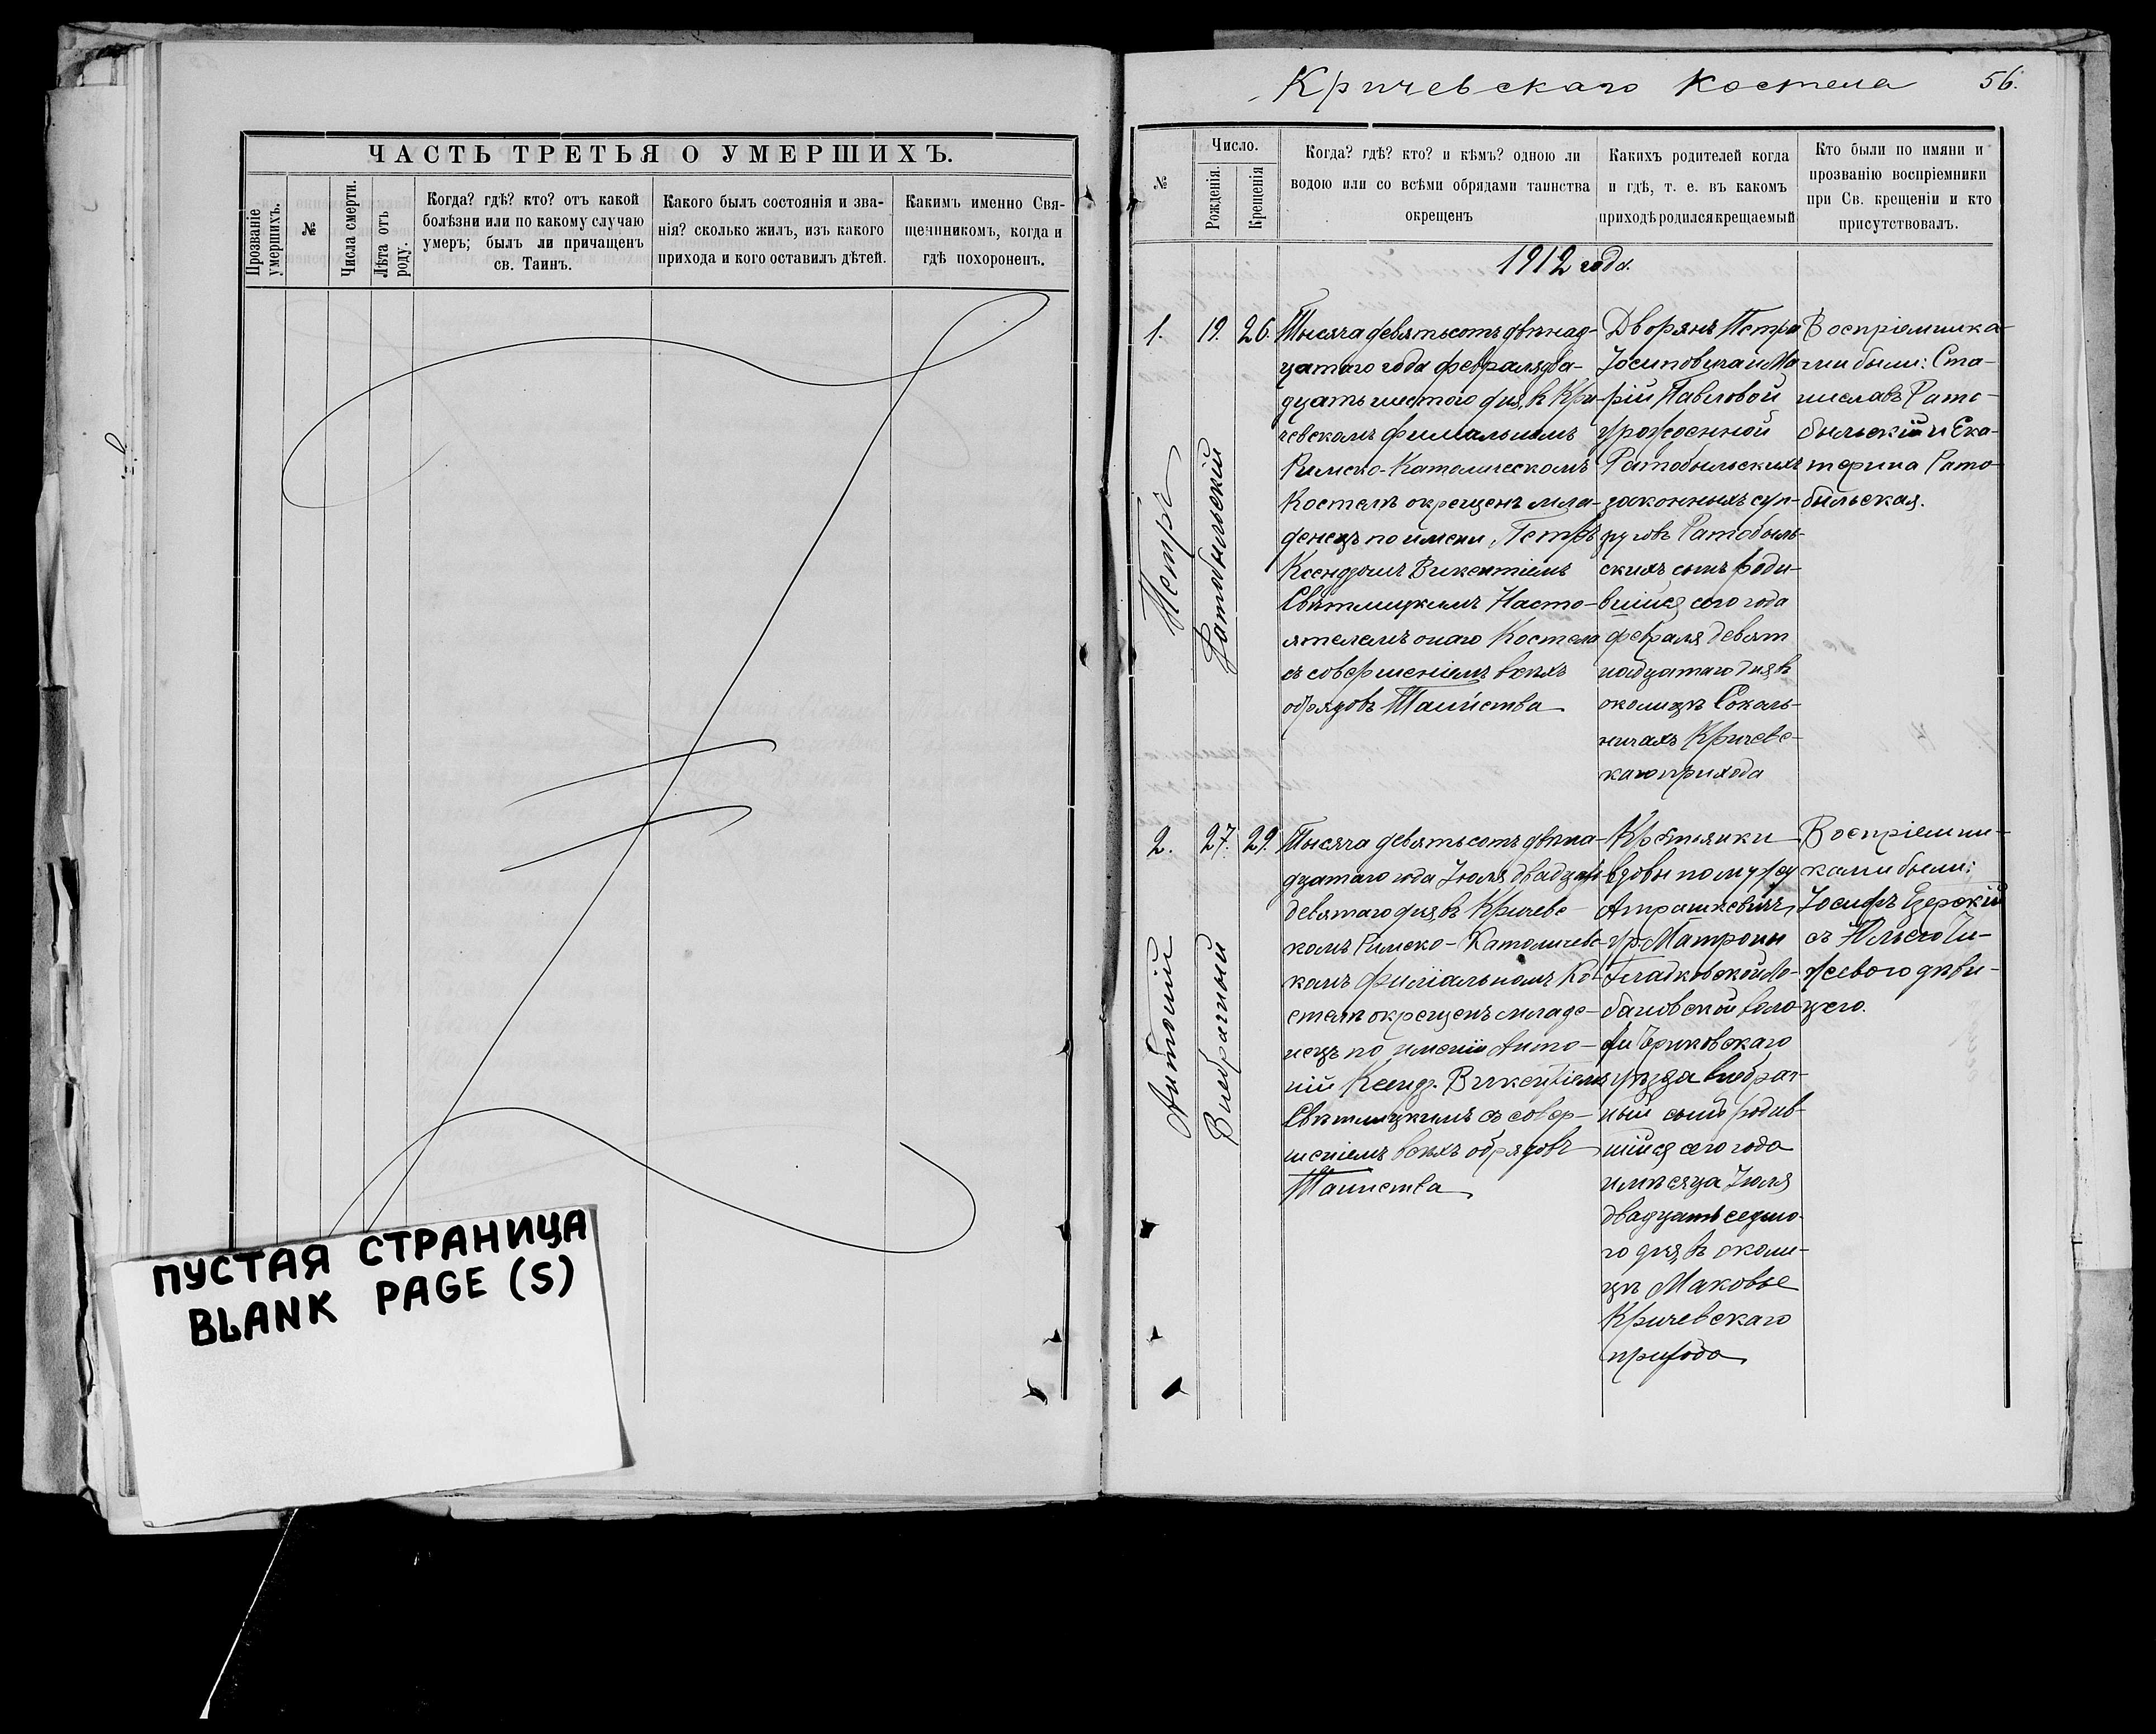 ЧАСТЬ ТРЕТЬЯ О УМЕРШИХЪ.
Прозваніе умершихъ.
№
Числа смерти.
Лѣта отъ роду.
Когда? гдѣ? кто? отъ какой
болѣзни или по какому случаю
умеръ; былъ ли причащенъ
св. Таинъ.
Какого былъ состоянія и зва-
нія? сколько жилъ, изъ какого
прихода и кого оставилъ дѣтей.
Какимъ именно Свя-
щенникомъ, когда и
гдѣ похороненъ.
ПУСТАЯ СТРАНИЦА
BLANK PAGE (S)
Кричевскаго Костела 56.
№
Число.
Рожденія.
Крещенія
Когда? гдѣ? кто? и кѣмъ? одною ли
водою или со всѣми обрядами таинства
окрещенъ
Какихъ родителей когда
и гдѣ, т. е. въ какомъ
приходѣ родился крещаемый
Кто были по имяни и
прозванію воспріемники
при Св. крещеніи и кто
присутствовалъ.
1912 года.
1. 19. 26.
Петръ
Ратобыльский
Тысяча девятьсотъ двѣнад-
цатаго года февраля два-
дцать шестого дня, в Кри-
чевскомъ филиальномъ
Римско-Католическомъ
Костелѣ окрещенъ мла-
денецъ по имени Петръ
Ксендзомъ Викентіемъ
Свѣтлицкимъ Насто-
ятелемъ онаго Костела
съ совершеніемъ всѣхъ
обрядовъ Таинства
Дворянъ Петра
Іосиповича и Ма
рій Павловой
урожденной
Ратобыльскихъ
законныхъ суп-
руговъ Ратобыль-
скихъ сынъ роди-
вшийся сего года
февраля девят
надцатаго дня в
околицѣ Сокаль-
ничахъ Кричевс-
каго прихода
Воспріемника
ми были: Ста-
ниславъ Рато-
быльскій и Ека-
терина Рато-
быльская.
2. 27. 29.
Антоній
Внебрачный
Тысяча девятьсотъ двѣна-
дцатаго года Іюля двадцать
девятаго дня, въ Кричевс-
комъ Римско-Католичес-
комъ филіальномъ Ко-
стелѣ окрещенъ младе-
нецъ по имени Анто-
ній Ксендз. Викентіемъ
Свѣтлицкимъ съ совер-
шеніемъ всѣхъ обрядовъ
Таинства
Крестьянки
вдовы по мужу
Атрашкевичъ,
ур. Матроны
Гладковской Ло-
бановской воло-
сти Чериковскаго
уѣзда внебрач-
ный сынъ родив-
шийся сего года
мѣсяца Іюля
двадцать седмо-
го дня, в околи-
цѣ Маковье
Кричевскаго
прихода
Воспріемни-
ками были:
Іосифъ
съ